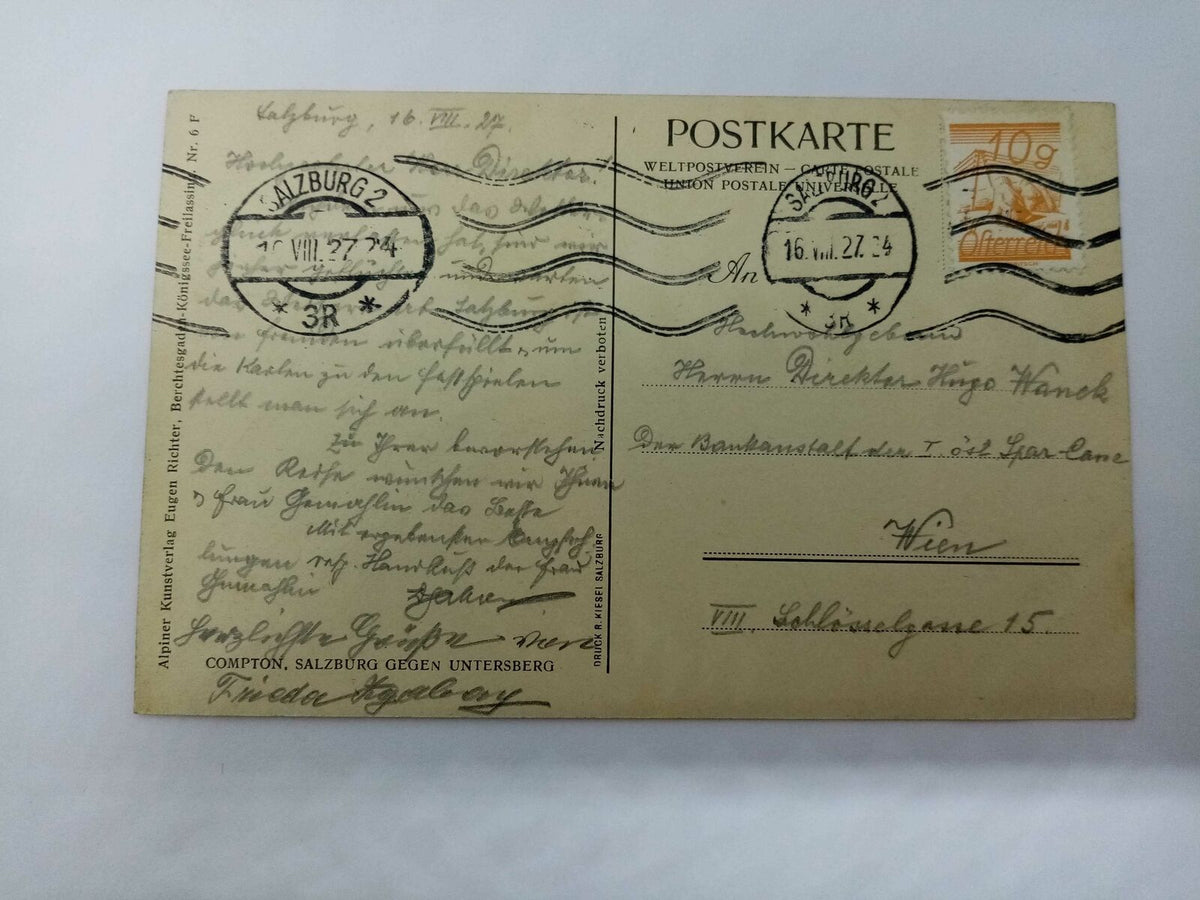 Salzburg, 16. VIII. 27.
Herr Direktor!
das Wetter
hat, sind wir
und
Salzburg ist
von Fremden überfüllt u. um
die Karten zu den Festspielen
stellt man sich an.
Zu Ihrer bevorstehen
den Reise wünschen wir Ihnen
u. Frau Gemahlin das Beste
Mit ergebensten Empfeh
lungen resp. Handkuß der Frau
Gemahlin
Herzlichste Grüße von
Frieda
COMPTON, SALZBURG GEGEN UNTERSBERG
Alpiner Kunstverlag Eugen Richter, Berchtesgaden-Königssee-Freilassing Nr. 6 F
Nachdruck verboten
DRUCK R. KIESEL SALZBURG
SALZBURG 2
16. VIII. 27. 24
* 3R *
POSTKARTE
WELTPOSTVEREIN — CARTE POSTALE
UNION POSTALE UNIVERSELLE
10g
Österreich
SALZBURG 2
16. VIII. 27. 24
* 3R *
An
Hochwohlgeboren
Herrn Direktor Hugo Wanek
Der Bankanstalt der I. öst Spar-Casse
Wien
VIII. Schlösselgasse 15.